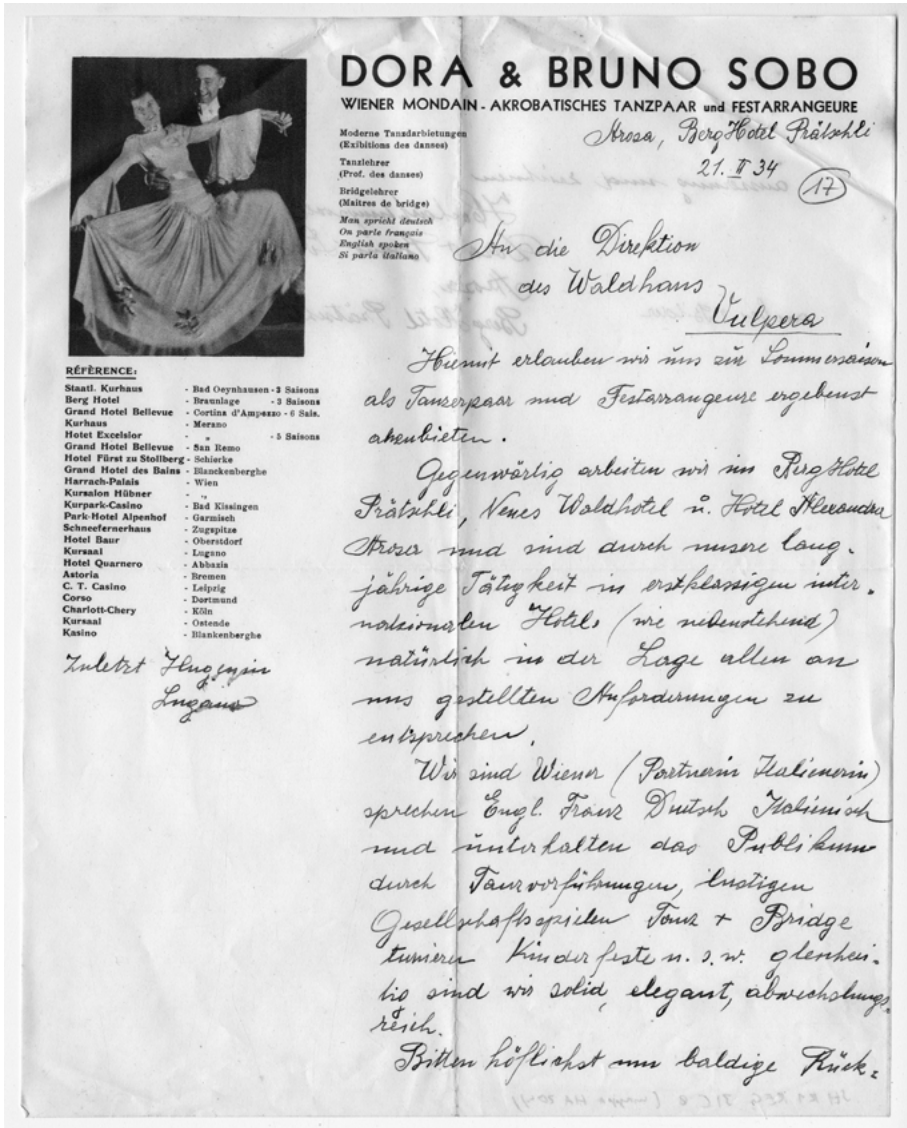 DORA & BRUNO SOBO
WIENER MONDAIN - AKROBATISCHES TANZPAAR und FESTARRANGEURE
Moderne Tanzdarbietungen
(Exibitions des danses)
Tanzlehrer
(Prof. des danses)
Bridgelehrer
(Maitres de bridge)
Man spricht deutsch
On parle français
English spoken
Si parla italiano
Arosa, BergHotel Prätschli
21. II 34
17
An die Direktion
des Waldhaus
Vulpera
RÉFÈRENCE:
Staatl. Kurhaus - Bad Oeynhausen - 3 Saisons
Berg Hotel - Braunlage - 3 Saisons
Grand Hotel Bellevue - Cortina d'Ampezzo - 6 Sais.
Kurhaus - Merano
Hotet Excelsior - „ - 5 Saisons
Grand Hotel Bellevue - San Remo
Hotel Fürst zu Stollberg - Schierke
Grand Hotel des Bains - Blanckenberghe
Harrach-Palais - Wien
Kursalon Hübner - „
Kurpark-Casino - Bad Kissingen
Park-Hotel Alpenhof - Garmisch
Schneefernerhaus - Zugspitze
Hotel Baur - Oberstdorf
Kursaal - Lugano
Hotel Quarnero - Abbazia
Astoria - Bremen
C. T. Casino - Leipzig
Corso - Dortmund
Charlott-Chery - Köln
Kursaal - Ostende
Kasino - Blankenberghe
Zuletzt Hugenin
Lugano
Hiemit erlauben wir uns zür Sommersaison
als Tanzerpaar und Festarrangeure ergebenst
anzubieten.
Gegenwärtig arbeiten wir im BergHotel
Prätschli, Neues Waldhotel ü. Hotel Alexandra
Arosa und sind durch unsere lang-
jährige Tätigkeit in erstklassigen inter-
nationalen Hotels (wie nebenstehend)
natürlich in der Lage allen an
uns gestellten Anforderungen zu
entsprechen.
Wir sind Wiener (Partnerin Italienerin)
sprechen Engl. Franz Deutsch Italienisch
und ünterhalten das Publikum
durch Tanzvorführungen, lustigen
Gesellschaftsspielen Tanz + Bridge
turnieren Kinderfeste u. s. w.
sind wir solid, elegant, abwechslungs-
reich.
Bitten höflichst um baldige Rück-